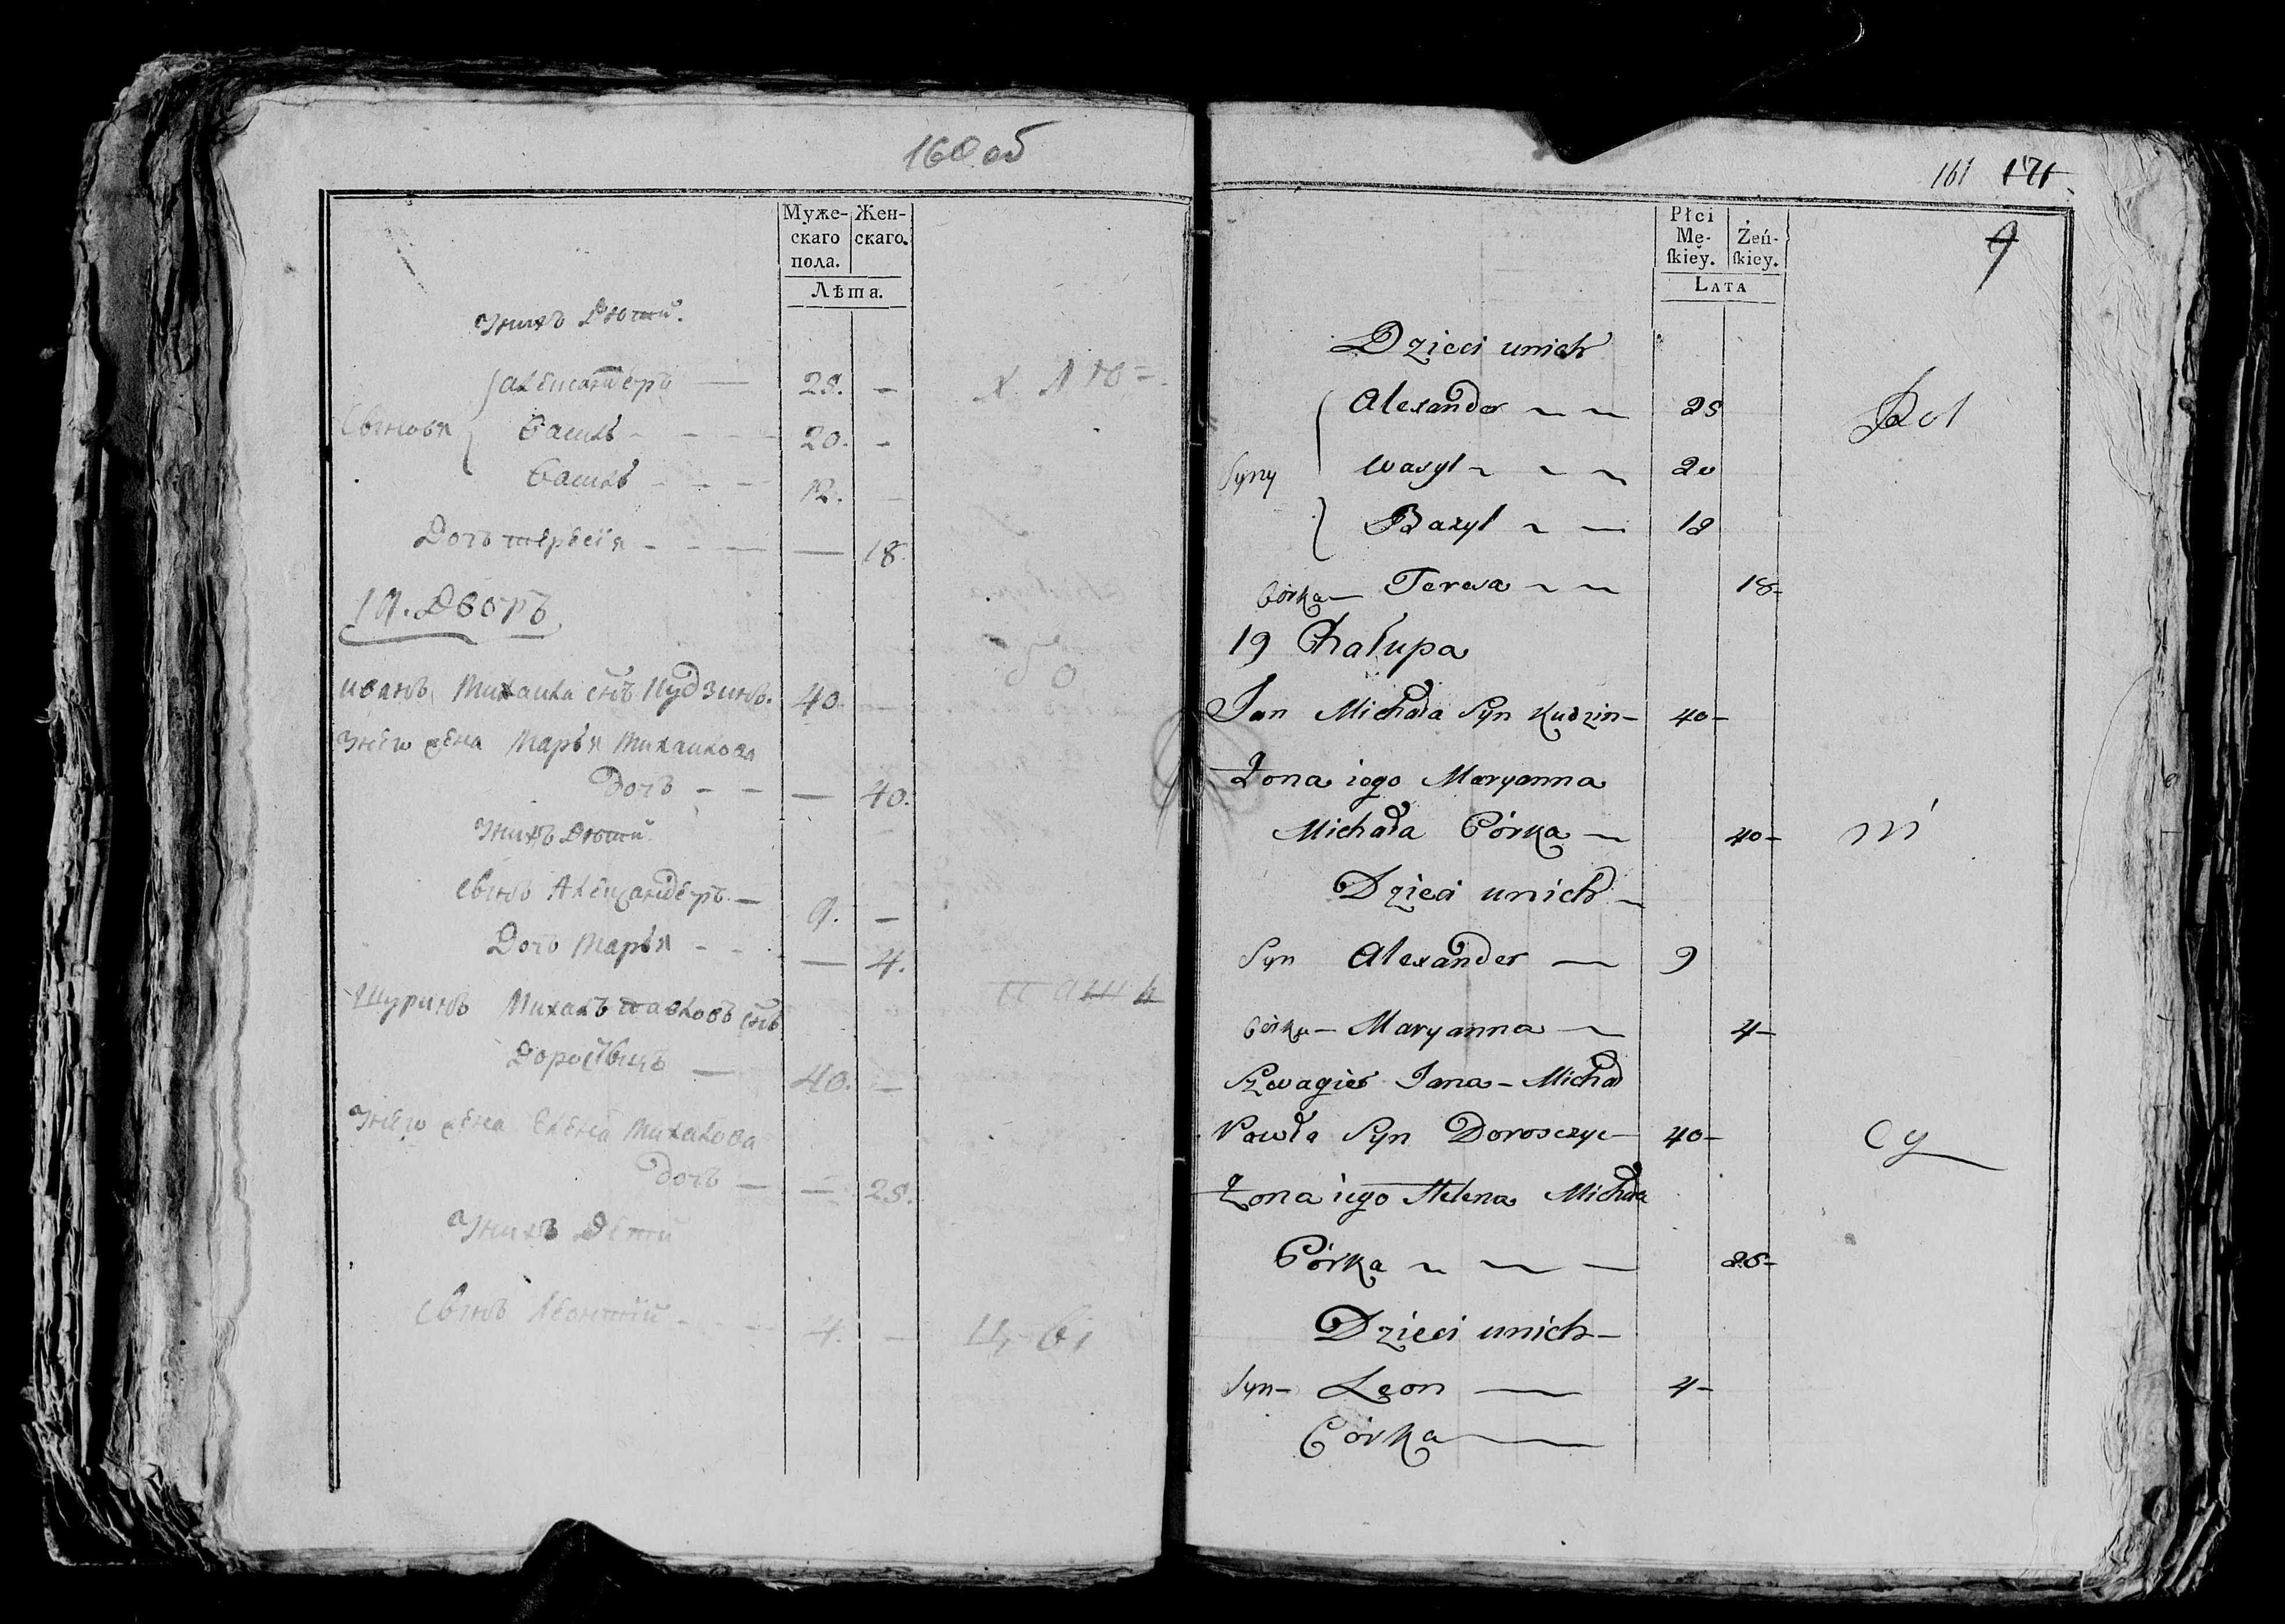 160 об
Муже-
скаго
пола.
Жен-
скаго.
Лѣта.
У нихъ Дѣти.
Сыновья
Александеръ — 25. –
Василь - - - 20. –
Василь - - - 12. –
Дочь Тересія - - — — 18.
19. Дворъ
Иванъ Михаила Сынъ Кудзинъ. 40. –
У него жена Марья Михаилова
Дочь - - — 40.
У нихъ Дѣти
Сынъ Александеръ — 9. –
Дочь Марья - - — 4.
Шуринъ Михалъ Павловъ Сынъ
40. –
У него жена Елена Михалова
Дочь — — 25.
У нихъ Дѣти
Сынъ Леонтій - - 4. –
161 171
9
Płci
Mę-
ſkiey.
Żeń-
ſkiey.
LATA
Dzieci unich
Syny
Alexander ~ ~ 25
Wasyl ~ ~ ~ 20
Bazyl ~ — 12
Córka — Teresa ~ ~ 18-
19 Chałupa
Jan Michała Syn Kudzin — 40-
Żona iego Maryanna
Michała Córka — 40-
Dzieci unich —
Syn Alexander — 9
Córka — Maryanna — 4-
Szwagier Jana — Michał
Pawła Syn Dorosczyc — 40-
Żona iego Helena Michała
Córka ~ ~ — 25-
Dzieci unich —
Syn — Leon — 4-
Córka —